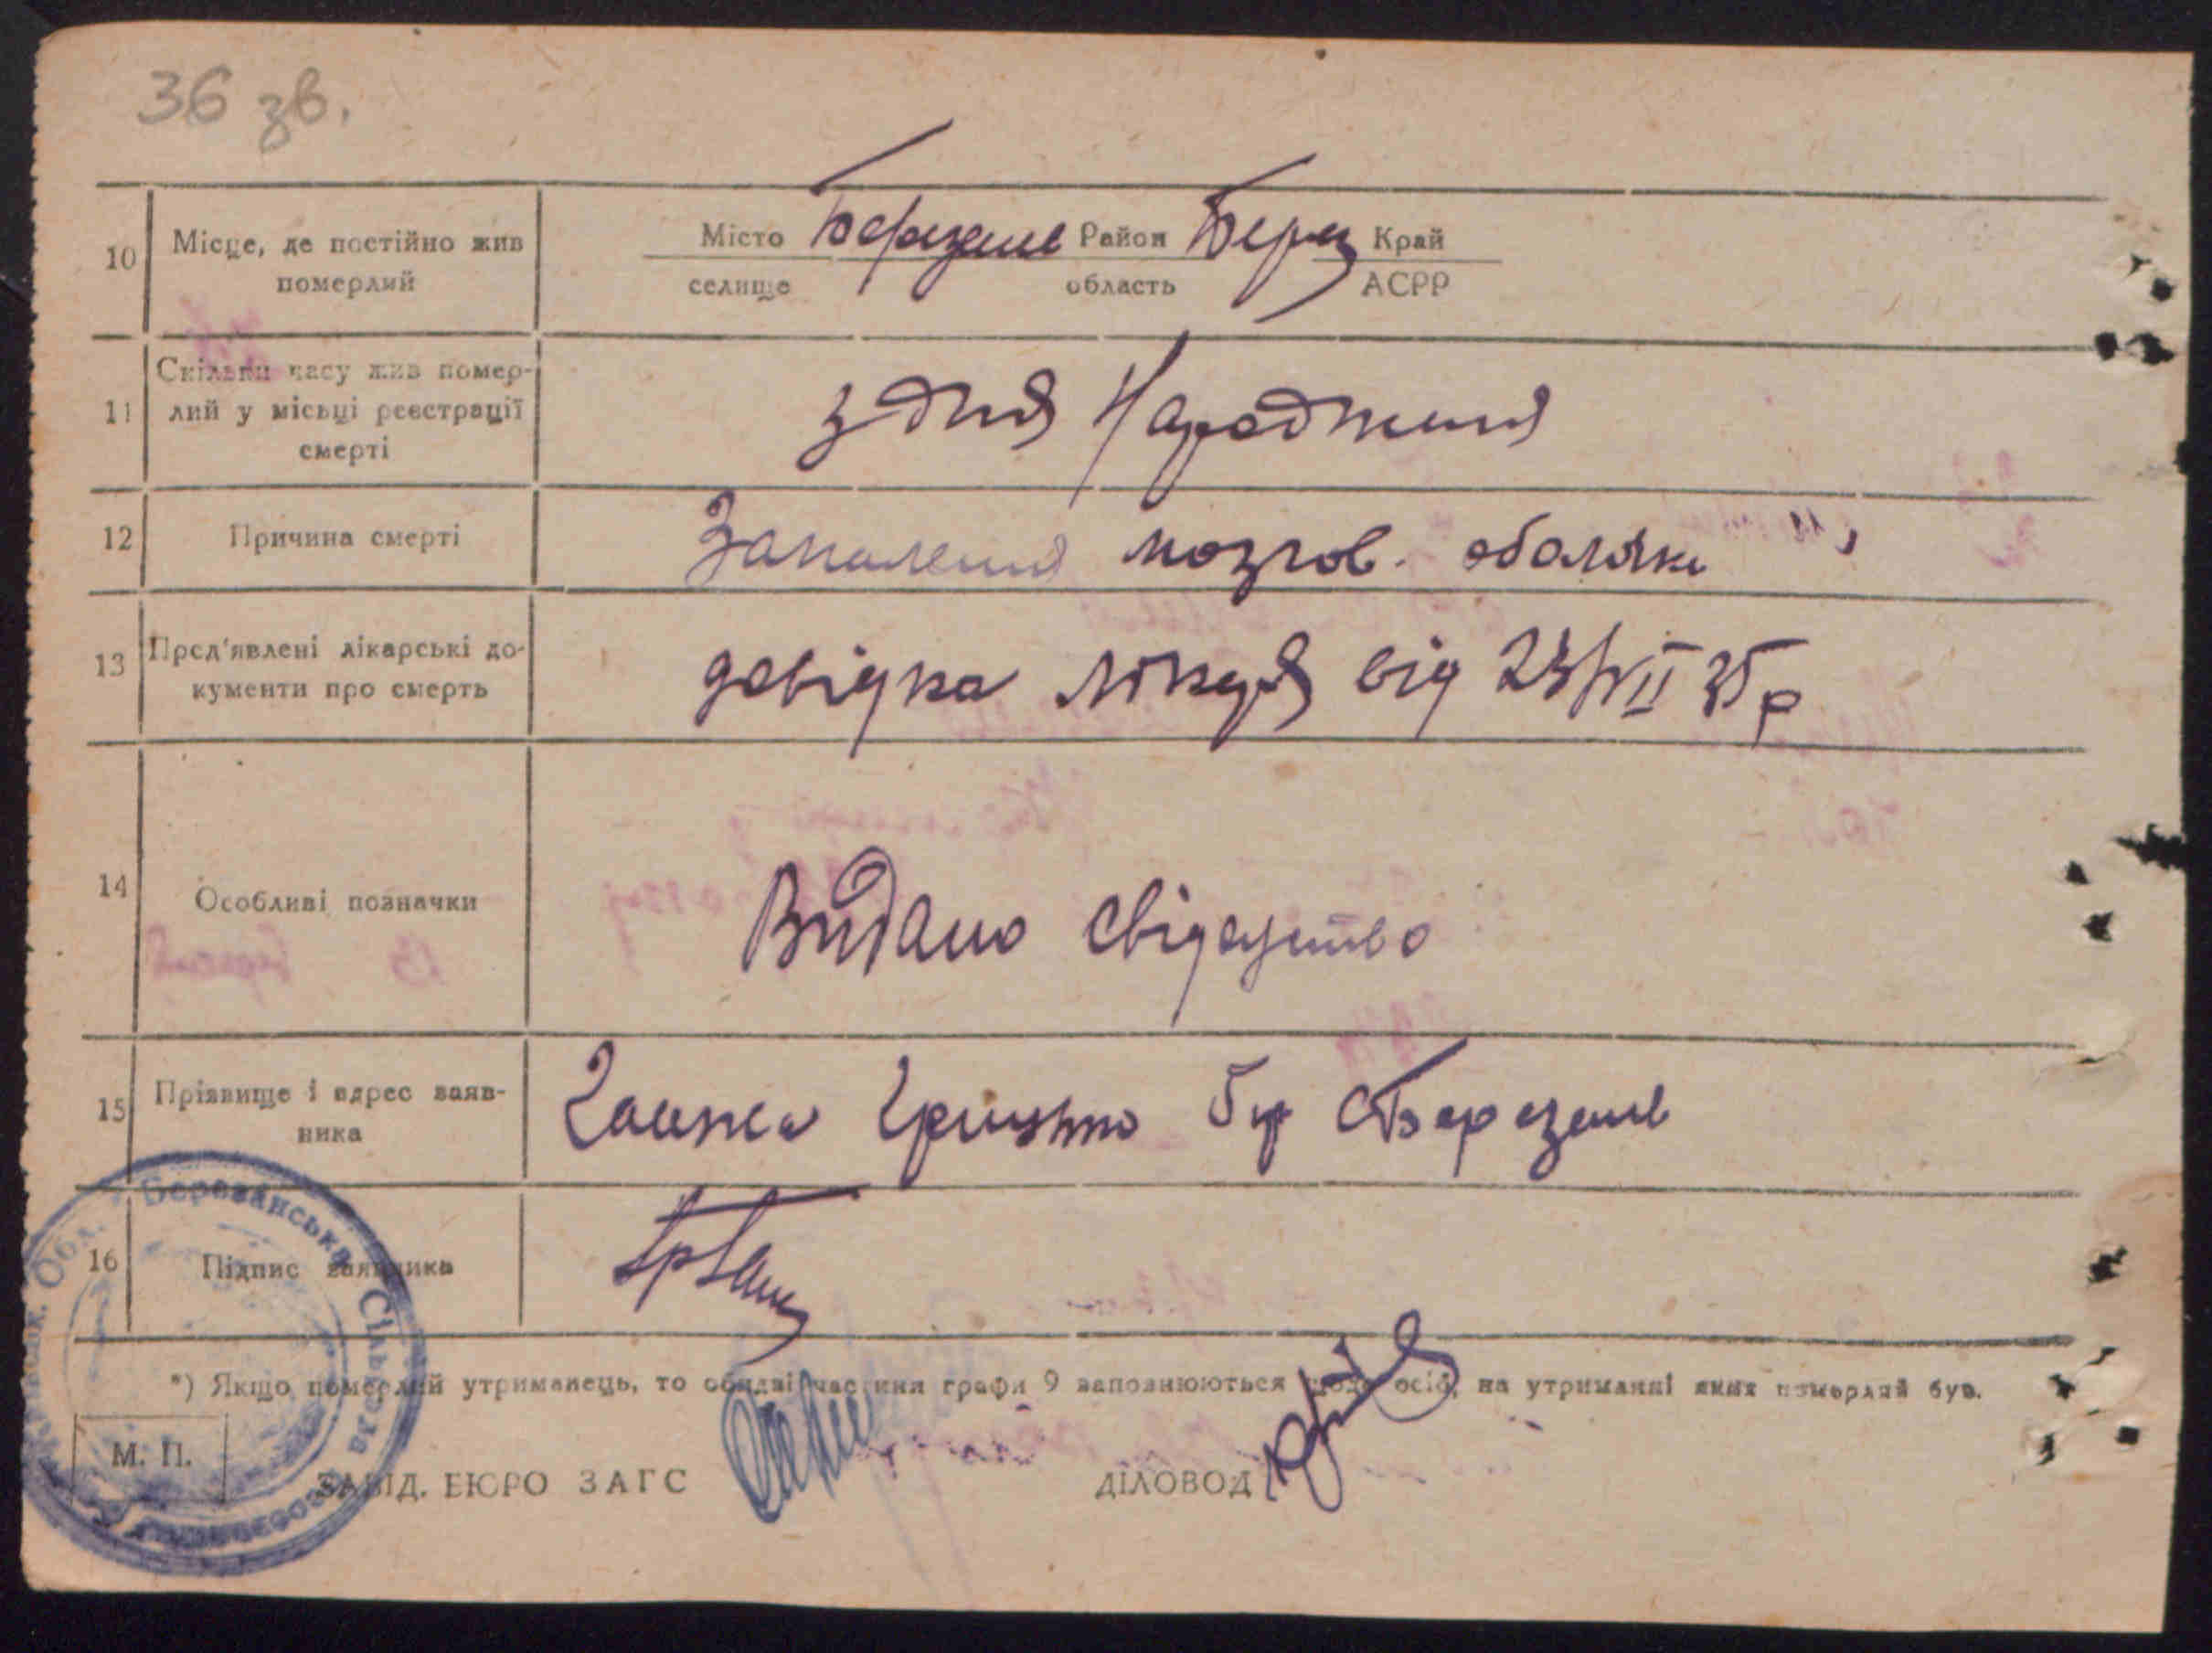 36 зв.
10 Місце, де постійно жив
померлий
Місто Березань Район Берез Край
селище область АСРР
11 Скільки часу жив помер-
лий у місьці реєстрації
смерті
з дня Народження
12 Причина смерті
Запалення мозгов. оболочки
13 Пред'явлені лікарські до-
кументи про смерть
довідка лікаря від 23/VII 35 р
14 Особливі позначки
Видано свідоцтво
15 Прізвище і адрес заяв-
ника
Грицько Березань
16 Підпис заявника
*) Якщо померлий утриманець, то обидві частини графи 9 заповнюються щодо осіб, на утриманні яких померлий був.
М. П.
ЗАВІД. БЮРО ЗАГС
ДІЛОВОД
Обл. Березанська Сільська